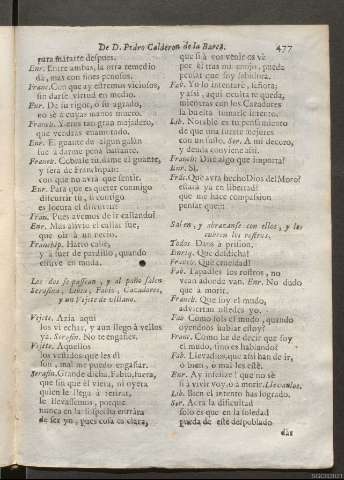 De D. Pedro Calderon de la Barca.
477
para matarte despues.
Enr. Entre ambas, la otra remedio
dà, mas con fines penosos.
Franc. Con que ay estremos viciosos,
sin darse virtud en medio.
Enr. De su rigor, ò su agrado,
no sè à cuyas manos muero.
Franch. Y eres tan gran majadero,
que vendràs enamorado.
Enr. El guante de algun galàn
fue à darme pena bastante.
Franch.
y serà de Franchipan:
con que no avrà que sentir.
Enr. Para que es querer conmigo
discurrir tu, si contigo
es locura el discurrir?
Fran. Pues avemos de ir callando?
Enr. Mas alivio el callar fue,
que oir à un necio.
Franchip. Harto cabe,
y à fuer de pardillo, quando
estuve en muda.
Los dos se passean, y al paño salen
Serafina, Libia, Fabio, Cazadores,
y un Vejete de villano.
Vejete. Azia aqui
los vi echar, y aun llego à vellos
ya. Serafin. No te engañes.
Vejete. Aquellos
los vestidos que les dì
son, mal me puedo engañar.
Serafin. Grande dicha, Fabio, fuera,
que sin que èl viera, ni oyera
quien le llega à retirar,
le llevassemos, porque
nunca en la sospecha entràra
de ser yo, pues cosa es clara,
que si à vos veniros và
por el tras mi enojo, pueda
pensar que soy sabidora.
Fab. Yo lo intentarè, señora;
y assi, aqui oculta te queda,
mientras con los Cazadores
la buelta tomarle intento.
Lib. Notable es tu pensamiento
de que una suerte mejores
con un susto. Ser. A mi decoro,
y deuda conviene assi.
Franch. Dirè algo que importa?
Enr. Sì.
Frãc. Què avrà hecho Dios del Moro?
estarà ya en libertad?
que me hace compassion
pensar que::
Salen, y abrazanse con ellos, y les
cubren los rostros.
Todos. Daos à prision.
Enriq. Què desdicha!
Franch. Què crueldad!
Fab. Tapadles los rostros, no
vean adonde van. Enr. No dudo
que à morir.
Franch. Que soy el mudo,
adviertan ustedes yo.
Fab. Como sois el mudo, quando
oyendoos hablar estoy?
Franc. Como he de decir que soy
el mudo, sino es hablando?
Fab. Llevadlos, que assi han de ir,
ò bien, ò mal les estè.
Enr. Ay infelize! que no sè
si à vivir voy, ò à morir. Llevanlos.
Lib. Bien el intento has logrado.
Ser. Aora la dificultad
solo es que en la soledad
pueda de este despoblado
dàr